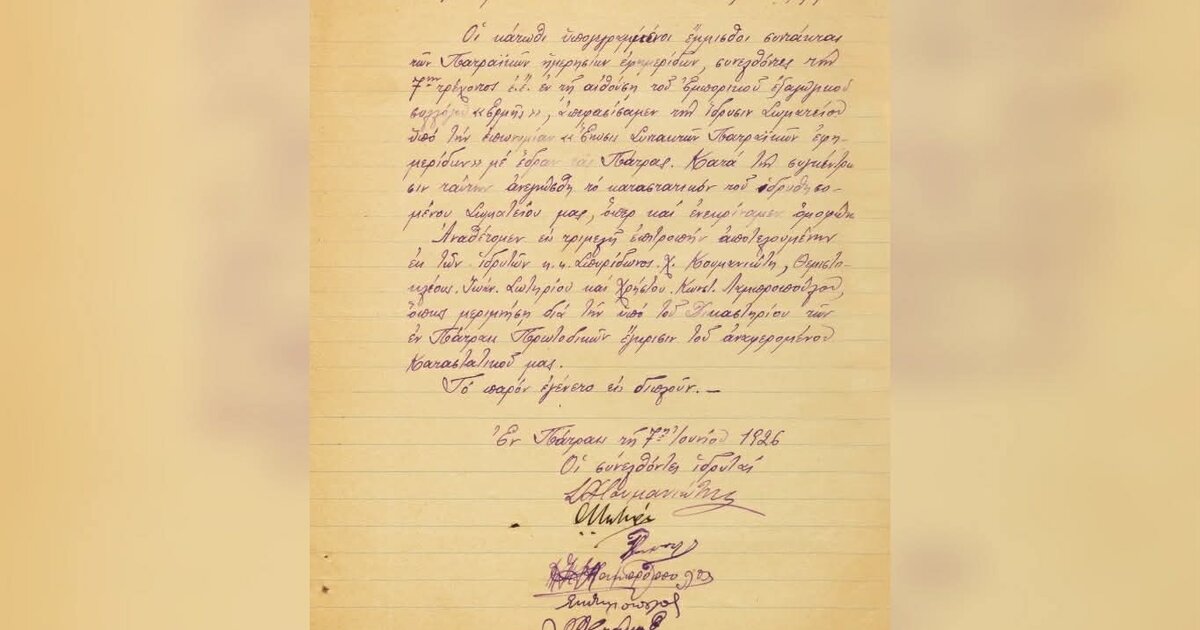 Οἱ κάτωθι ὑπογεγραμμένοι ἔμμισθοι συντάκται
τῶν Πατραϊκῶν ἡμερησίων ἐφημερίδων, συνελθόντες τὴν
7ην τρέχοντος ἐ.ἔ. ἐν τῇ αἰθούσῃ τοῦ Ἐμπορικοῦ
συλλόγου «Ἑρμῆς», ἀπεφασίσαμεν τὴν ἵδρυσιν Σωματείου
ὑπὸ τὴν ἐπωνυμίαν «Ἕνωσις Συντακτῶν Πατραϊκῶν ἐφη-
μερίδων» μὲ ἕδραν τὰς Πάτρας. Κατὰ τὴν συγκέντρω
σιν ταύτην ἀνεγνώσθη τὸ καταστατικὸν τοῦ ἱδρυθησο-
μένου Σωματείου μας, ὅπερ καὶ ἐνεκρίναμεν ὁμοφώνως
Ἀναθέτομεν εἰς τριμελῆ ἐπιτροπὴν ἀποτελουμένην
ἐκ τῶν ἱδρυτῶν κ.κ. Σπυρίδωνος Χ. Κουμανιώτη, Θεμιστο-
κλέους Ἰωάν. Σωτηρίου καὶ Χρήστου Κωνστ. Λαμπροπούλου,
ὅπως μεριμνήσῃ διὰ τὴν ὑπὸ τοῦ Δικαστηρίου τῶν
ἐν Πάτραις Πρωτοδικῶν ἔγκρισιν τοῦ ἀναφερομένου
Καταστατικοῦ μας.
Τὸ παρὸν ἐγένετο εἰς διπλοῦν. —
Ἐν Πάτραις τῇ 7ῃ Ἰουνίου 1926
Οἱ συνελθόντες ἱδρυταί
Σ. Χ. Κουμανιώτης